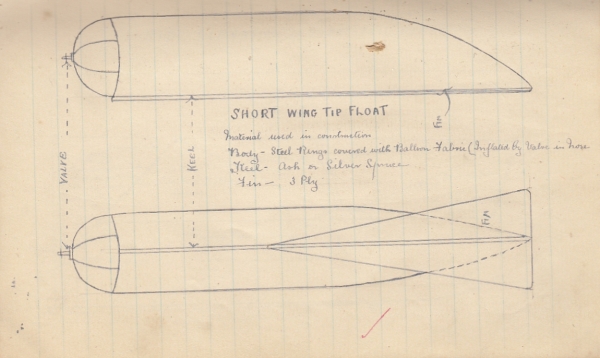 SHORT WING TIP FLOAT
Material used in construction
Body - Steel Rings covered with Balloon Fabric (Inflated By Valve in Nose
Keel - Ash or Silver Spruce
Fin - 3 Ply
VALVE
KEEL
Fin
Fin